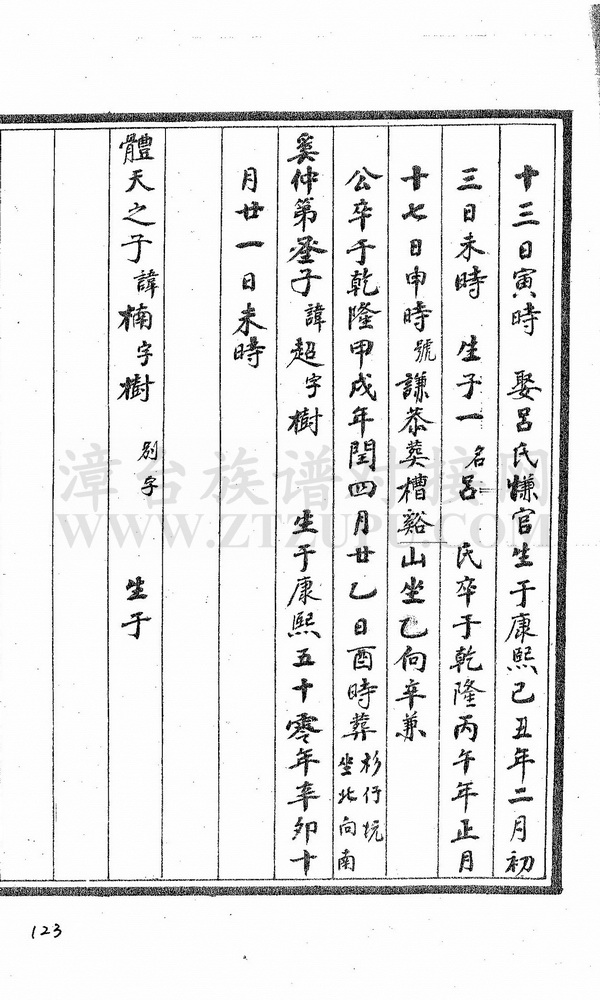 十三日寅時　娶呂氏慊官生于康熙己丑年二月初
三日未時　生子一　名呂　氏卒于乾隆丙午年正月
十七日申時號謙恭葬槽谿山坐乙向辛兼
公卒于乾隆甲戌年閏四月廿乙日酉時葬杉行坑坐北向南
奚仲第子諱超字樹　生于康熙五十零年辛卯十
月廿一日未時
體天之子諱楠字樹　別字　生于
漳台族谱对接网
WWW.ZTZUPU.COM
123